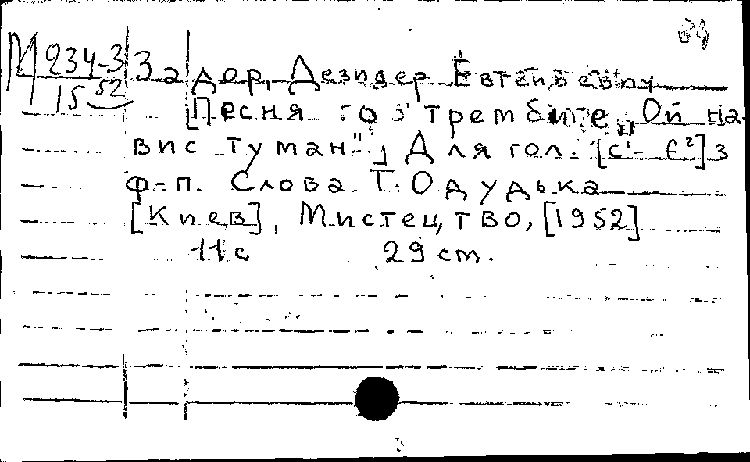 М 234-3
15 52
Задор, Дезидер Евгеньевич
[Песня го з трембите „Ой на-
вис туман"] Для гол. [c¹- f²] з
ф-п. Слова Т. Одудька
[Киев], Мистецтво, [1952]
11 с 29 cm.